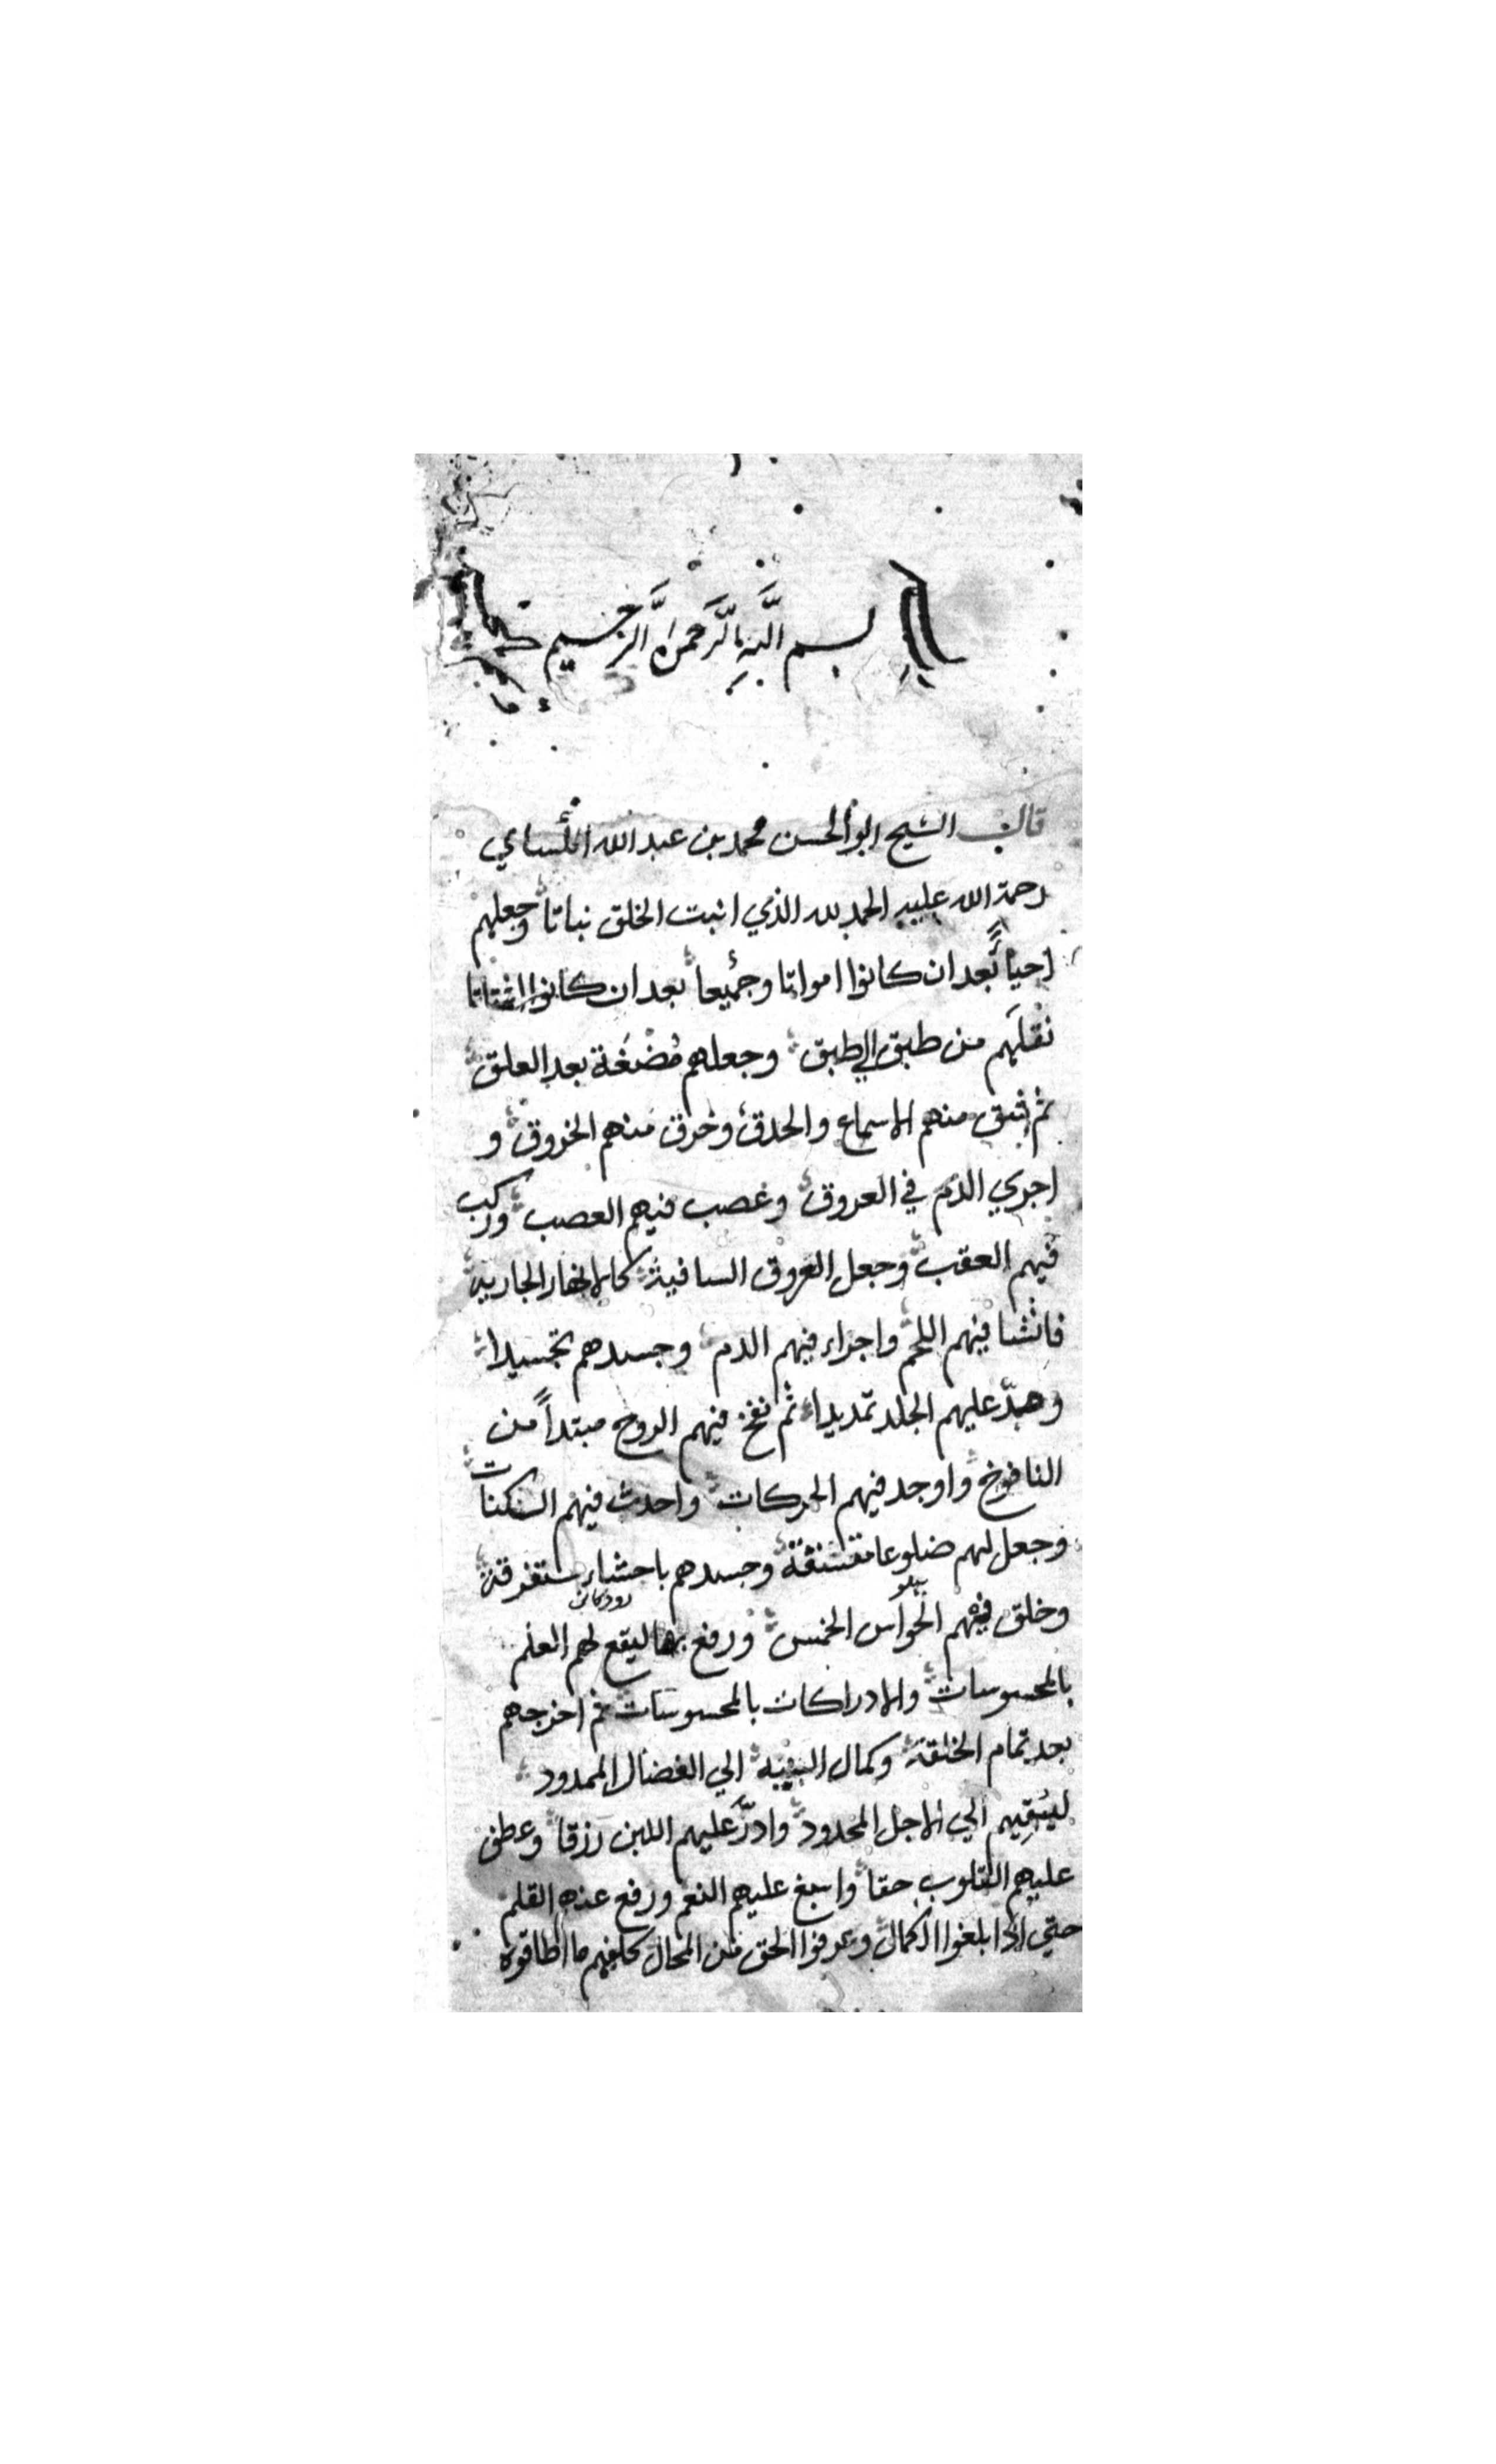 بسم اللَّهِ الرَّحمن الرَّحيم
قال الشيخ ابو الحسن محمد بن عبد الله الكساي
رحمة الله عليه الحمد لله الذي انبت الخلق نباتا وجعلهم
احياً بعد ان كانوا امواتا وجميعا بعد ان كانوا اشتاتا
نقلهم من طبق الي طبق وجعلهم مضغة بعد العلق
ثم شق منهم الاسماع والحدق وخرق منهم الخروق و
اجري الدم في العروق وعصب فيهم العصب وركب
فيهم العقب وجعل العروق السافية كالانهار الجارية
فانشا فيهم اللحم واجراء فيهم الدم وجسدهم تجسيدا
ومدّ عليهم الجلد تمديدا ثم نفخ فيهم الروح مبتداً من
النافوخ واوجد فيهم الحركات واحدث فيهم السكنات
وجعل لهم ضلوعا وجسدهم باحشاء متفرقة
پهلو رودكان
وخلق فيهم الحواس الخمس ورفع بها ليقع لهم العلم
بالمحسوسات والادراكات بالمحسوسات ثم اخرجهم
بعد تمام الخلقة وكمال البنية الي الفضال الممدود
ليبقيهم الي الاجل المحدود وادرَّ عليهم اللبن رزقا وعطف
عليهم القلوب حقا واسبغ عليهم النعم ورفع عنهم القلم
حتي اذا بلغوا الكمال وعرفوا الحق من المحال كلفهم ما اطاقوه